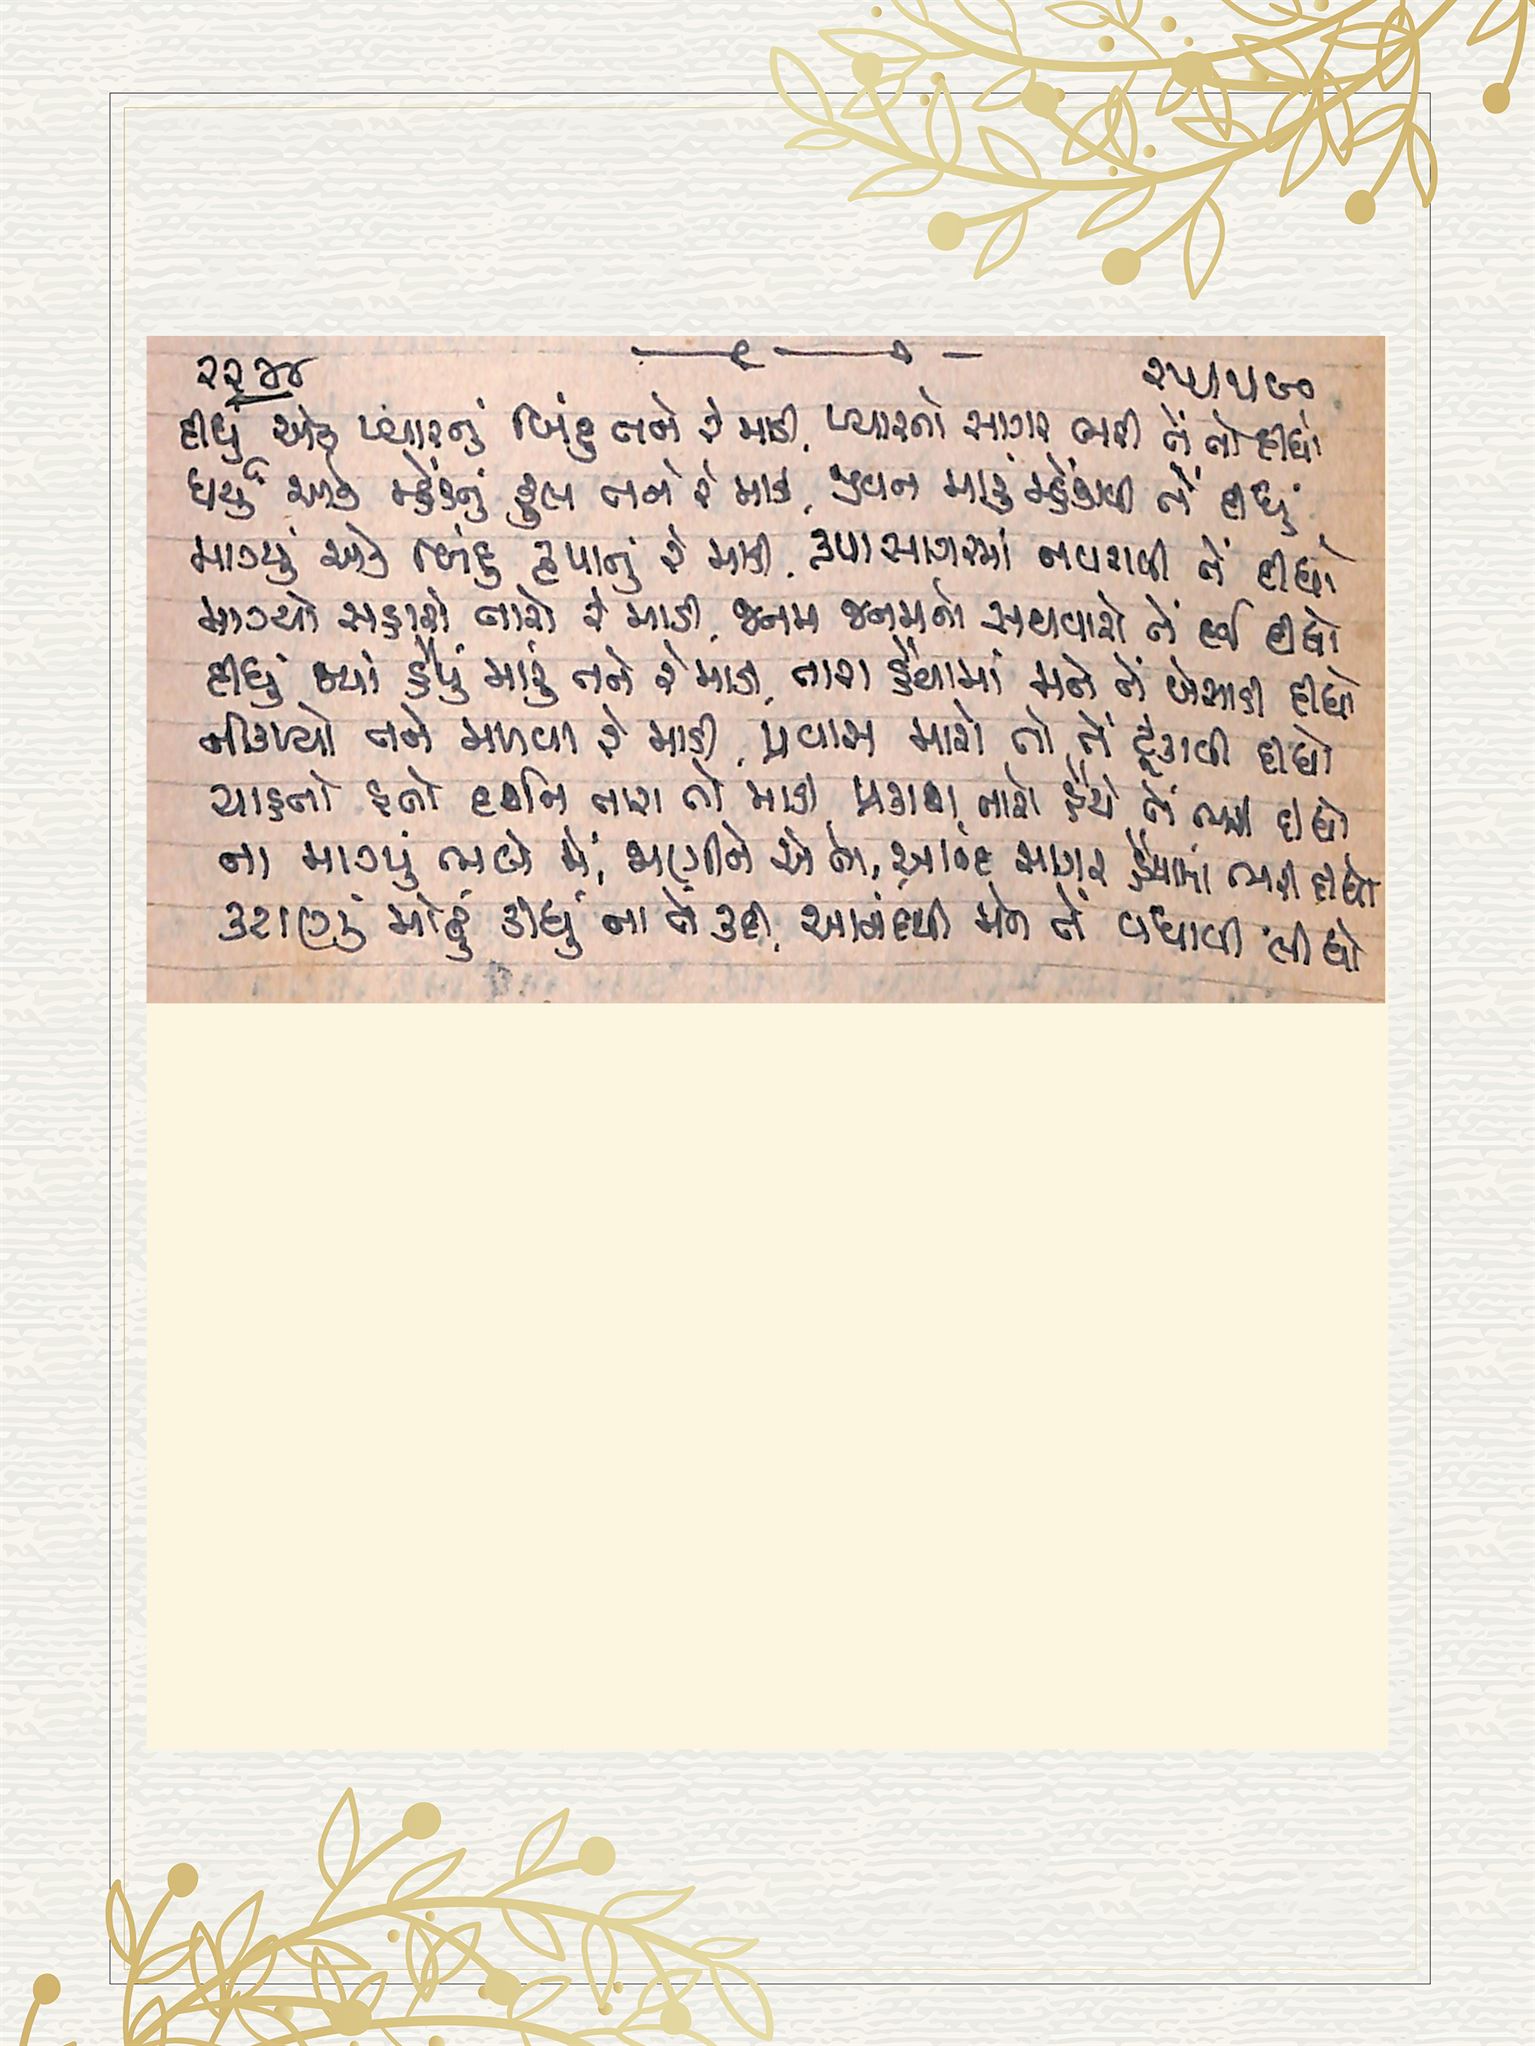 ૨૨૪૪ ૨૫/૫/૯૦
દીધું એક પ્યારનું બિંદુ તને રે માડી, પ્યારનો સાગર ભરી તેં તો દીધો
ધર્યું એક મ્હેંકનું ફૂલ તને રે માડી, જીવન મારું મ્હેંકાવી તેં દીધું
માગ્યું એક બિંદુ કૃપાનું રે માડી, કૃપાસાગરમાં નવરાવી તેં દીધો
માગ્યો સહારો તારો રે માડી, જનમ જનમનો સથવારો તેં દઈ દીધો
દીધું જ્યાં હૈયું મારું તને રે માડી, તારા હૈયામાં મને તેં બેસાડી દીધો
નીકળ્યો તને મળવા રે માડી, પ્રવાસ મારો તો તેં ટૂંકાવી દીધો
ચાહતો હતો દર્શન તારા તો માડી, પ્રકાશ તારો હૈયે તેં ભરી દીધો
ના માગ્યું ભલે મેં, જાણીને એ તેં, આનંદ સાગર હૈયામાં ભરી દીધો
કટાણું મોઢું કીધું ના તેં કદી, આનંદથી મને તેં વધાવી લીધો